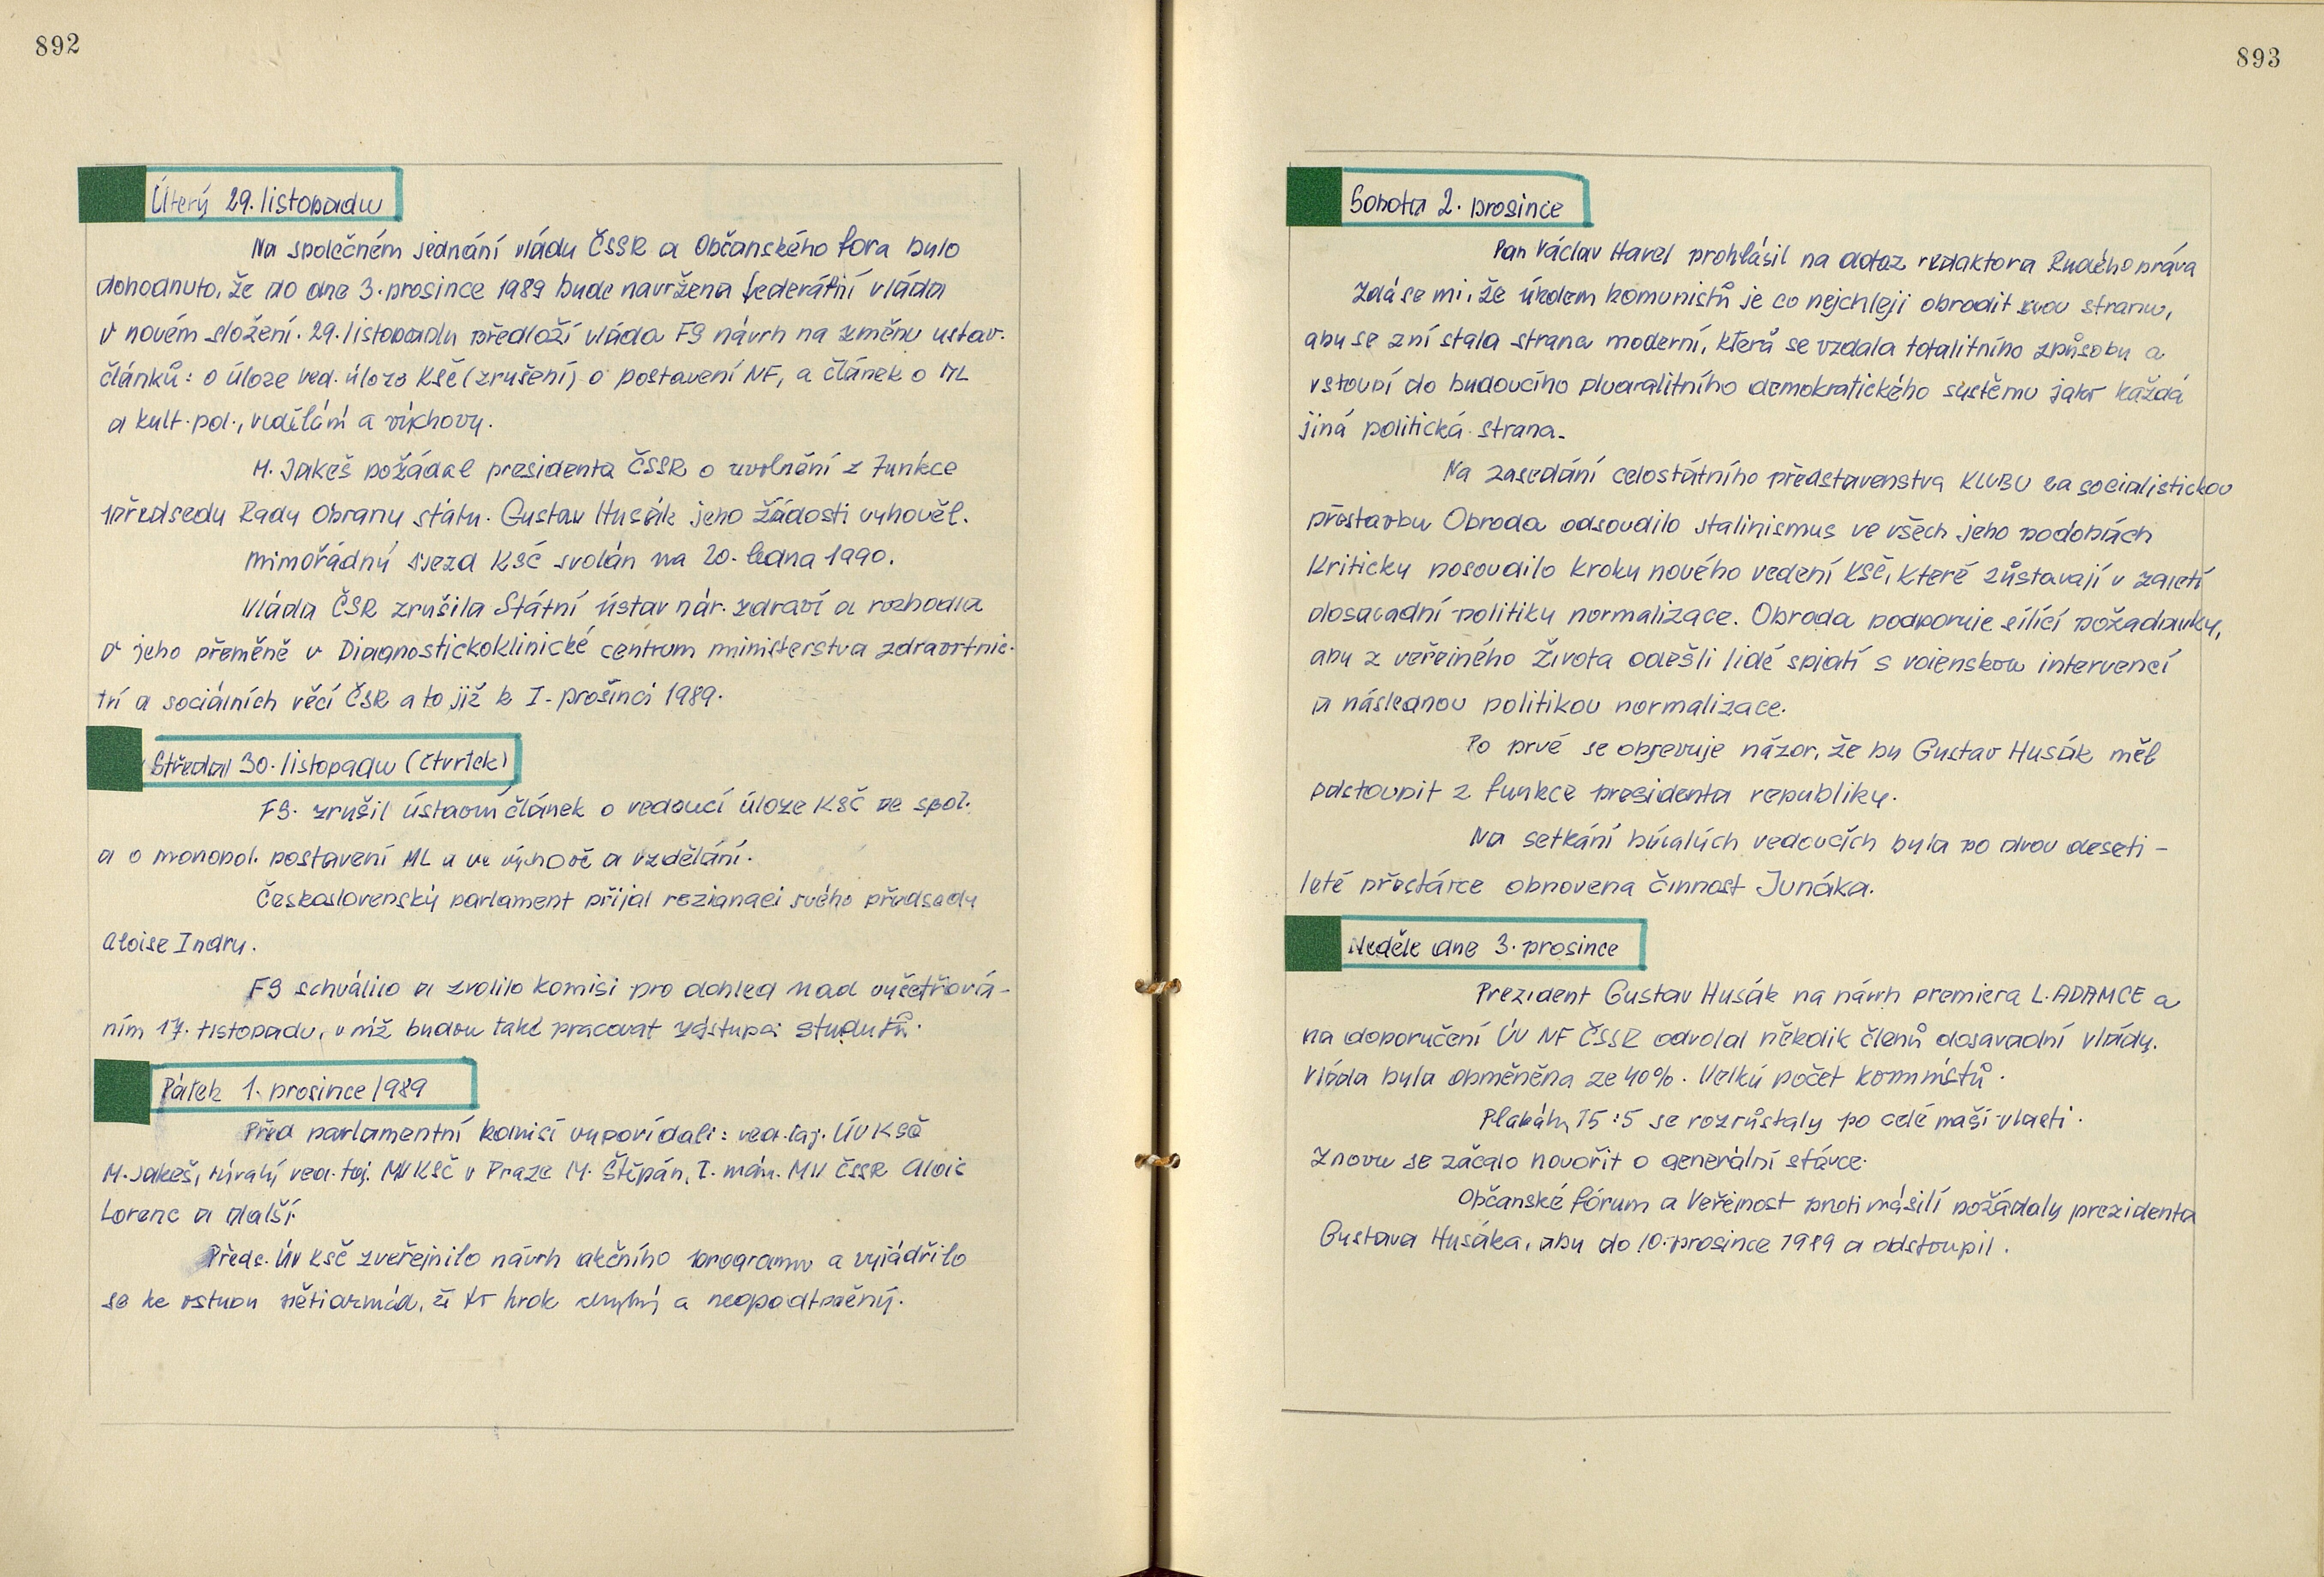 892
Úterý 29. listopadu
Na společném jednání vlády ČSSR a Občanského fora bylo
dohodnuto, že do dne 3. prosince 1989 bude navržena federální vláda
v novém složení. 29. listopadu předloží vláda FS návrh na změnu ustav.
článků: o úloze ved. úloze KSČ (zrušení) o postavení NF, a článek o ML
a kult. pol., vzdělání a výchovy.
M. Jakeš požádal presidenta ČSSR o uvolnění z funkce
předsedy Rady Obrany státu. Gustav Husák jeho žádosti vyhověl.
Mimořádný sjezd KSČ svolán na 20. ledna 1990.
Vláda ČSR zrušila Státní ústav nár. zdraví a rozhodla
o jeho přeměně v Diagnostickoklinické centrum ministerstva zdravotnic-
tví a sociálních věcí ČSR a to již k I. prosinci 1989.
Středa 30. listopadu (čtvrtek)
FS. zrušil ústavní článek o vedoucí úloze KSČ ve spol.
a o monopol. postavení ML u ve výchově a vzdělání.
Československý parlament přijal rezignaci svého předsedy
Aloise Indry.
FS schválilo a zvolilo komisi pro dohled nad vyšetřová-
ním 17. listopadu, v níž budou také pracovat zástupci studentů.
Pátek 1. prosince 1989
Před parlamentní komisí vypovídali: ved. taj. ÚV KSČ
M. Jakeš, bývalý ved. taj. MV KSČ v Praze M. Štěpán, I. nám. MV ČSSR Alois
Lorenc a další.
Předs. ÚV KSČ zveřejnilo návrh akčního programu a vyjádřilo
se ke vstupu pěti armád, že to krok chybný a neopodtněný.
893
Sobota 2. prosince
Pan Václav Havel prohlásil na dotaz redaktora Rudého práva
Zdá se mi, že úkolem komunistů je co nejchleji obrodit svou stranu,
aby se zní stala strana moderní, která se vzdala totalitního způsobu a
vstoupí do budoucího pluaralitního demokratického systému jako každá
jiná politická strana.
Na zasedání celostátního představenstva KLUBU za socialistickou
přestavbu Obroda odsoudilo stalinismus ve všech jeho podobách
Kriticky posoudilo kroky nového vedení KSČ, které zůstavají v zajetí
dosavadní politiky normalizace. Obroda podporuje sílící požadavky,
aby z veřejného života odešli lidé spjatí s vojenskou intervencí
a následnou politikou normalizace.
Po prvé se objevuje názor, že by Gustav Husák měl
odstoupit z funkce presidenta republiky.
Na setkání bývalých vedoucích byla po dvou deseti-
leté přestávce obnovena činnost Junáka.
Neděle dne 3. prosince
Prezident Gustav Husák na návrh premiera L. ADAMCE a
na doporučení ÚV NF ČSSR odvolal několik členů dosavadní vlády.
Vláda byla obměněna ze 40%. Velký počet komunistů.
Plakáty 15:5 se rozrůstaly po celé naší vlasti.
Znovu se začalo hovořit o generální stávce.
Občanské fórum a Veřejnost proti násilí požádaly prezidenta
Gustava Husáka, aby do 10. prosince 1989 a odstoupil.